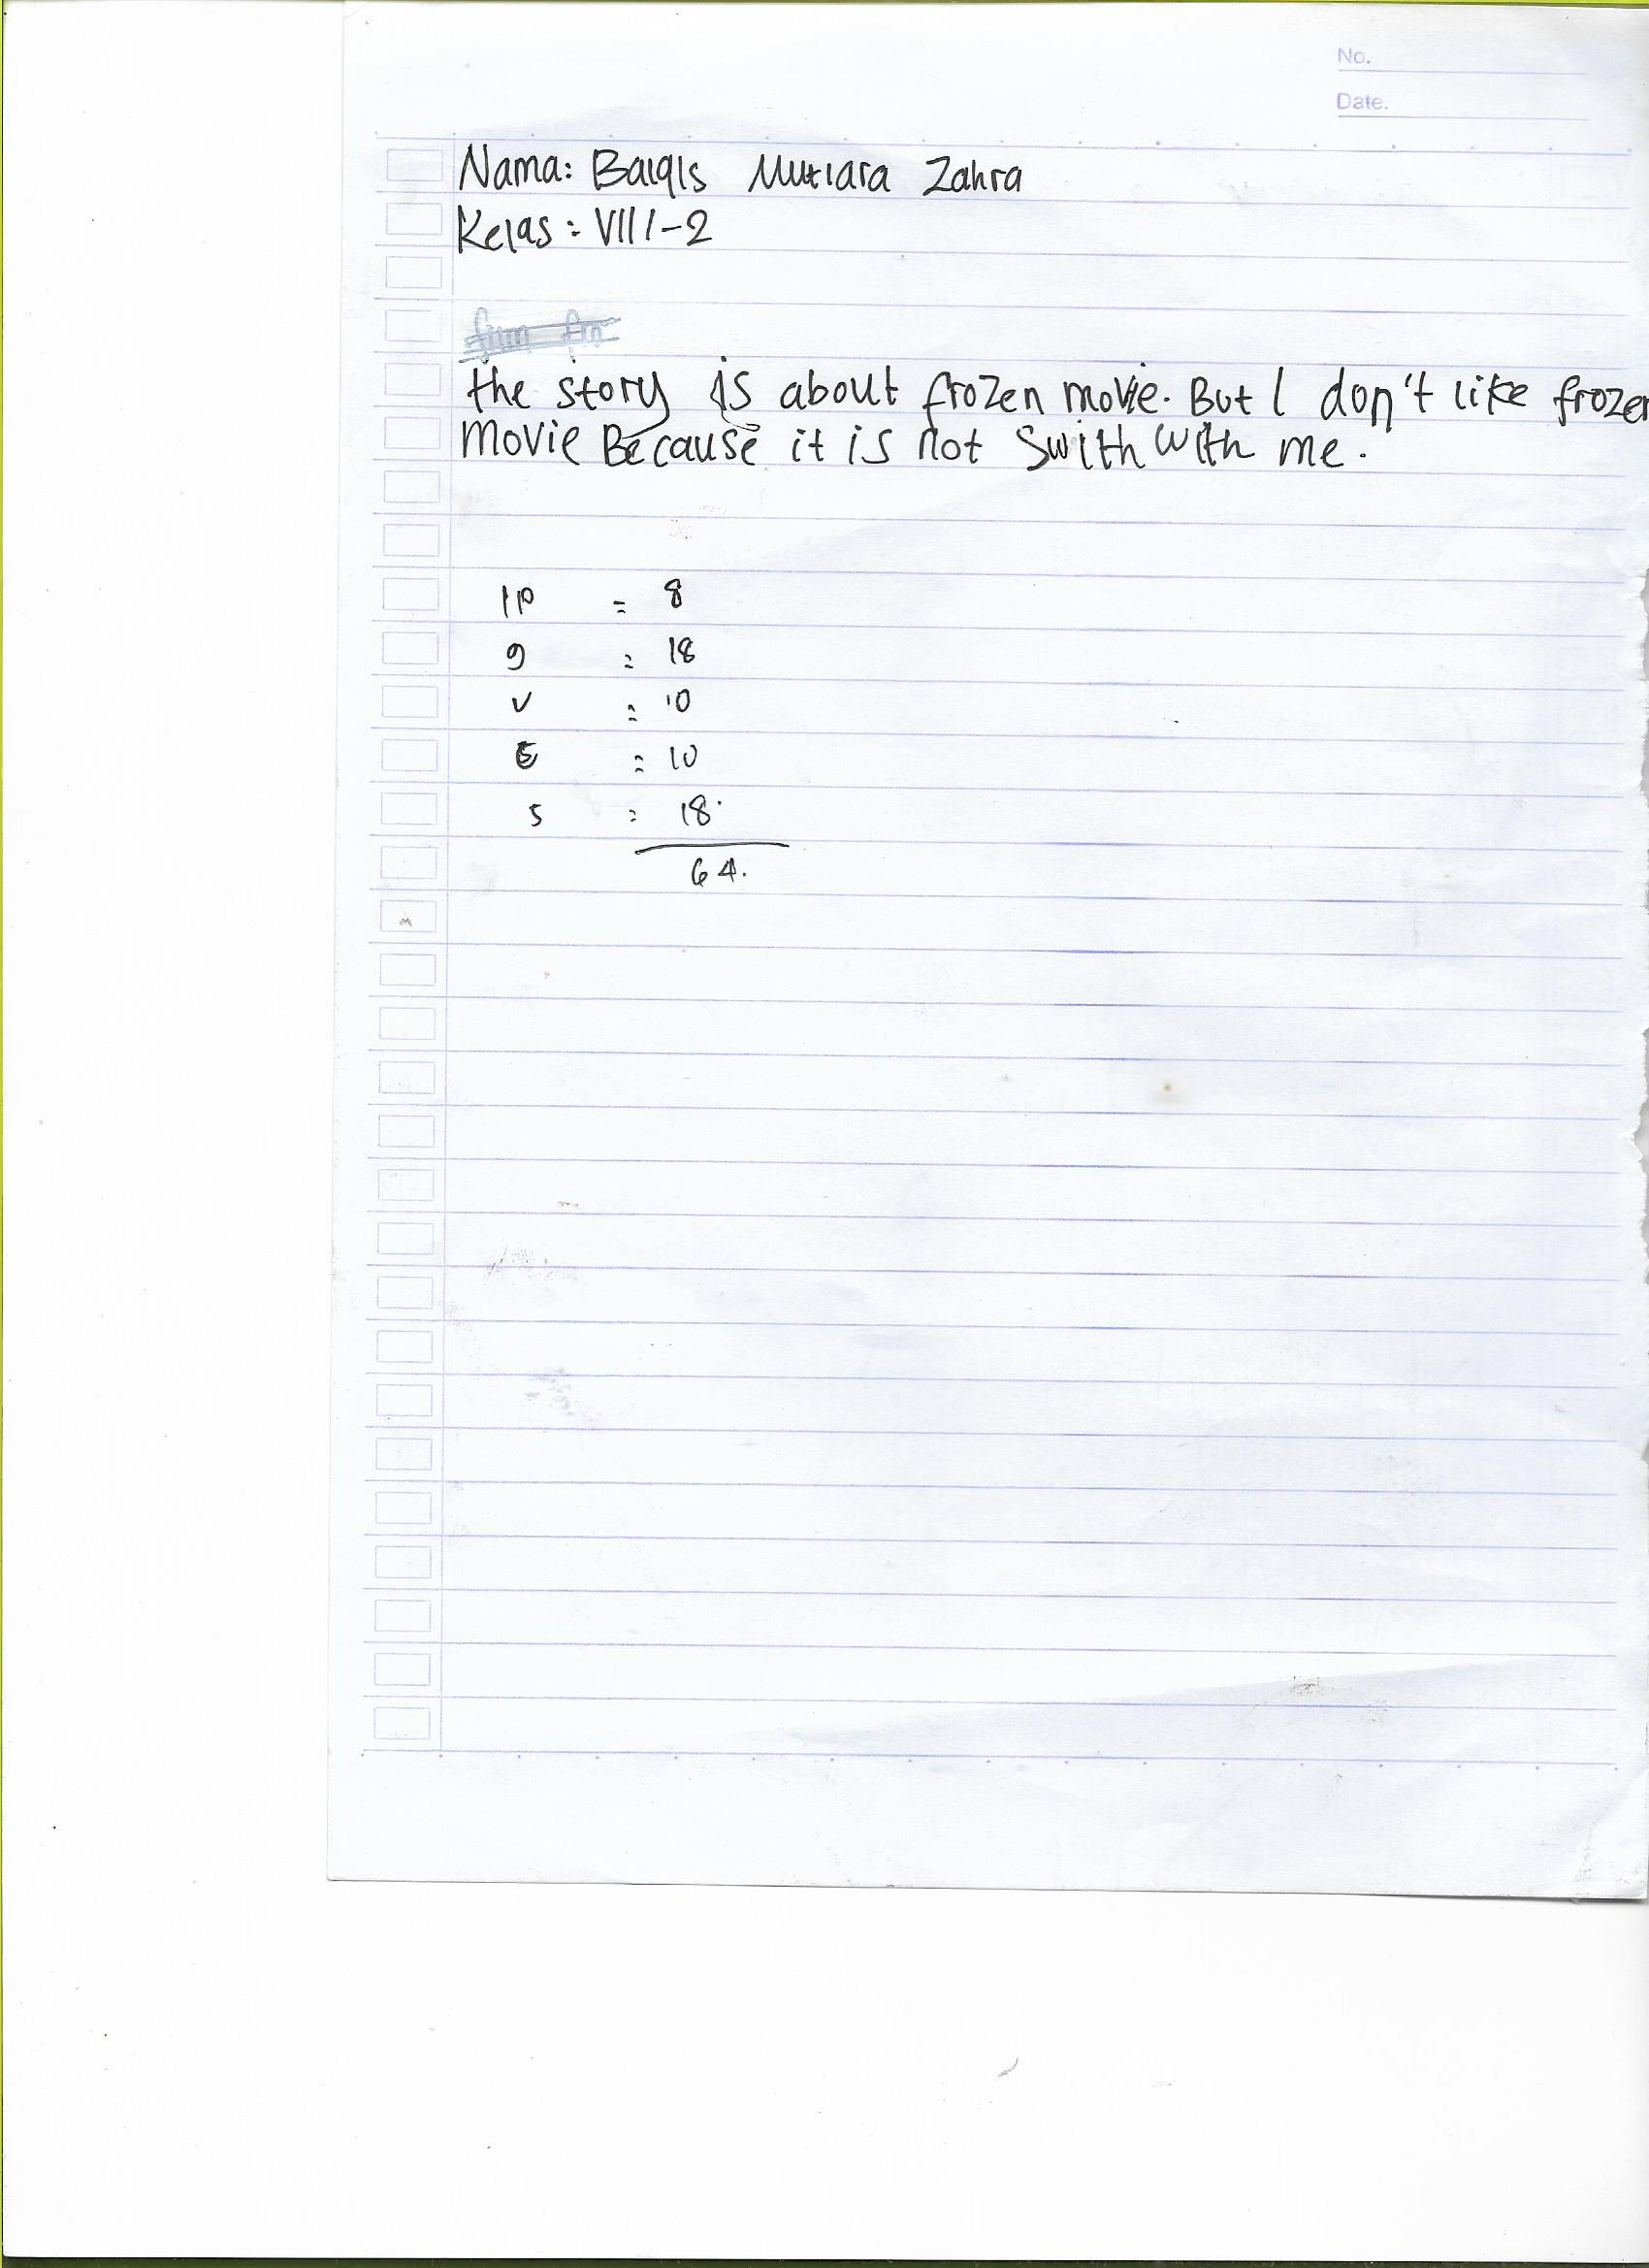 No.
Date.
Nama: Balqis Mutiara Zahra
Kelas: VIII-2
the story is about frozen movie. But I don't like frozen
movie Because it is not Swith with me.
IP = 8
g = 18
v = 10
= 10
s = 18
64.